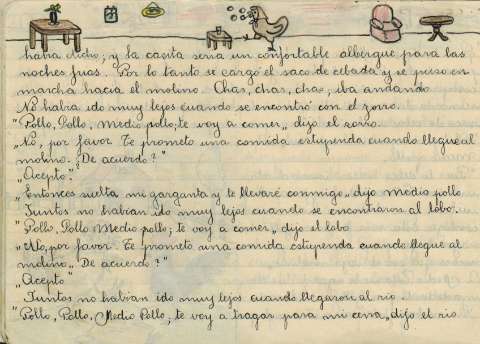 había dicho; y la casita sería un confortable albergue para las
noches frias. Por lo tanto se cargó el saco de cebada y se puso en
marcha hacia el molino. Chas, chas, chas; iba andando
No habia ido muy lejos cuando se encontró con el zorro.
"Pollo, Pollo, Medio pollo; te voy a comer„ dijo el zorro.
„No, por favor. Te prometo una comida estupenda cuando llegue al
molino. ¿De acuerdo?"
„Acepto"
„Entonces suelta mi garganta y te llevaré conmigo„ dijo medio pollo
Juntos no habian ido muy lejos cuando se encontraron al lobo.
"Pollo, Pollo Medio pollo; te voy a comer„ dijo el lobo
„No, por favor. Te prometo una comida estupenda cuando llegue al
molino„ De acuerdo?"
„Acepto"
Juntos no habian ido muy lejos cuando llegaron al rio.
"Pollo, Pollo, Medio Pollo; te voy a tragar para mi cena„ dijo el rio.